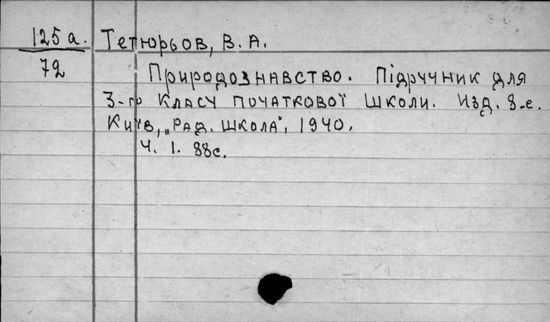 125а. Тетюрьов, В. А.
72
Природознавство. Підручник для
3-го класу початкової школи. Изд. 8-е.
Київ, „Рад. школа", 1940.
Ч. 1. 88с.